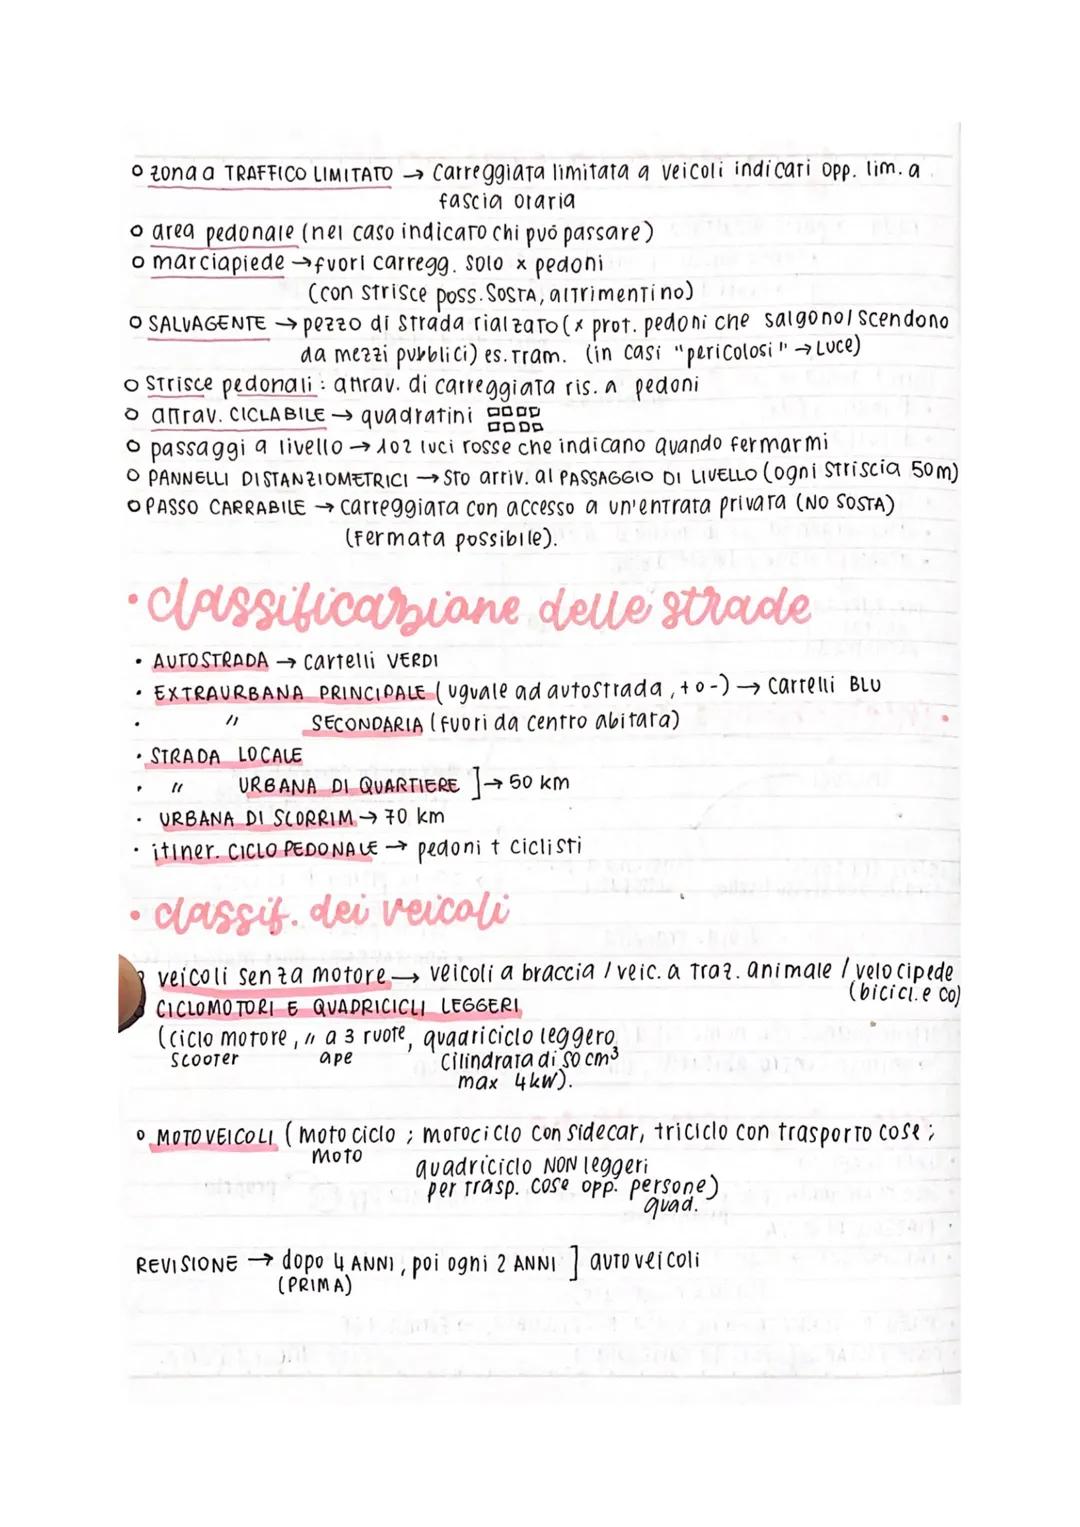 zona a TRAFFICO LIMITATO → carreggiata limitata a veicoli indicati opp. lim. a
fascia oraria
area pedonale (nel caso indicato chi può passare)
marciapiede → fuori carregg. solo x pedoni
(con strisce poss. SOSTA, altrimenti no)
SALVAGENTE → pezzo di strada rialzato (x prot. pedoni che salgono/scendono
da mezzi pubblici) es. tram. (in casi "pericolosi" → LUCE)
strisce pedonali : attrav. di carreggiata ris. a pedoni
attrav. CICLABILE → quadratini
passaggi a livello → 1 o 2 luci rosse che indicano quando fermarmi
PANNELLI DISTANZIOMETRICI → sto arriv. al PASSAGGIO DI LIVELLO (ogni striscia 50m)
PASSO CARRABILE → carreggiata con accesso a un'entrata privata (NO SOSTA)
(fermata possibile).
• classificazione delle strade
• AUTOSTRADA → cartelli VERDI
• EXTRAURBANA PRINCIPALE (uguale ad autostrada, + o -) → cartelli BLU
• " SECONDARIA (fuori da centro abitata)
• STRADA LOCALE
• " URBANA DI QUARTIERE ] → 50 km
• URBANA DI SCORRIM. → 70 km
• itiner. CICLO PEDONALE → pedoni + ciclisti
• classif. dei veicoli
veicoli senza motore → veicoli a braccia / veic. a traz. animale / velocipede
(bicicl. e co)
CICLOMOTORI E QUADRICICLI LEGGERI
(ciclo motore, " a 3 ruote, quadriciclo leggero
scooter ape cilindrata di 50 cm³
max 4kW).
MOTOVEICOLI (motociclo ; motociclo con sidecar, triciclo con trasporto cose ;
moto quadriciclo NON leggeri
per trasp. cose opp. persone)
quad.
REVISIONE → dopo 4 ANNI, poi ogni 2 ANNI ] autoveicoli
(PRIMA)